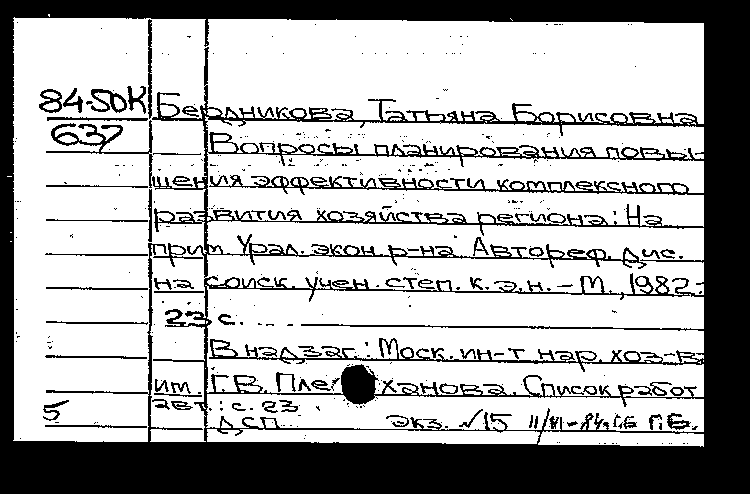 84-5ОК Бердникова, Татьяна Борисовна
637 Вопросы планирования повы-
шения эффективности комплексного
развития хозяйства региона: На
прим. Урал. экон. р-на. Автореф. дис.
на соиск. учен. степ. к. э. н. - М., 1982.-
23 с.
В надзаг.: Моск. ин-т нар. хоз-ва
им. Г.В. Плеханова. Список работ
авт.: с. 23.
5 ДСП экз. №15 11/VI-84.